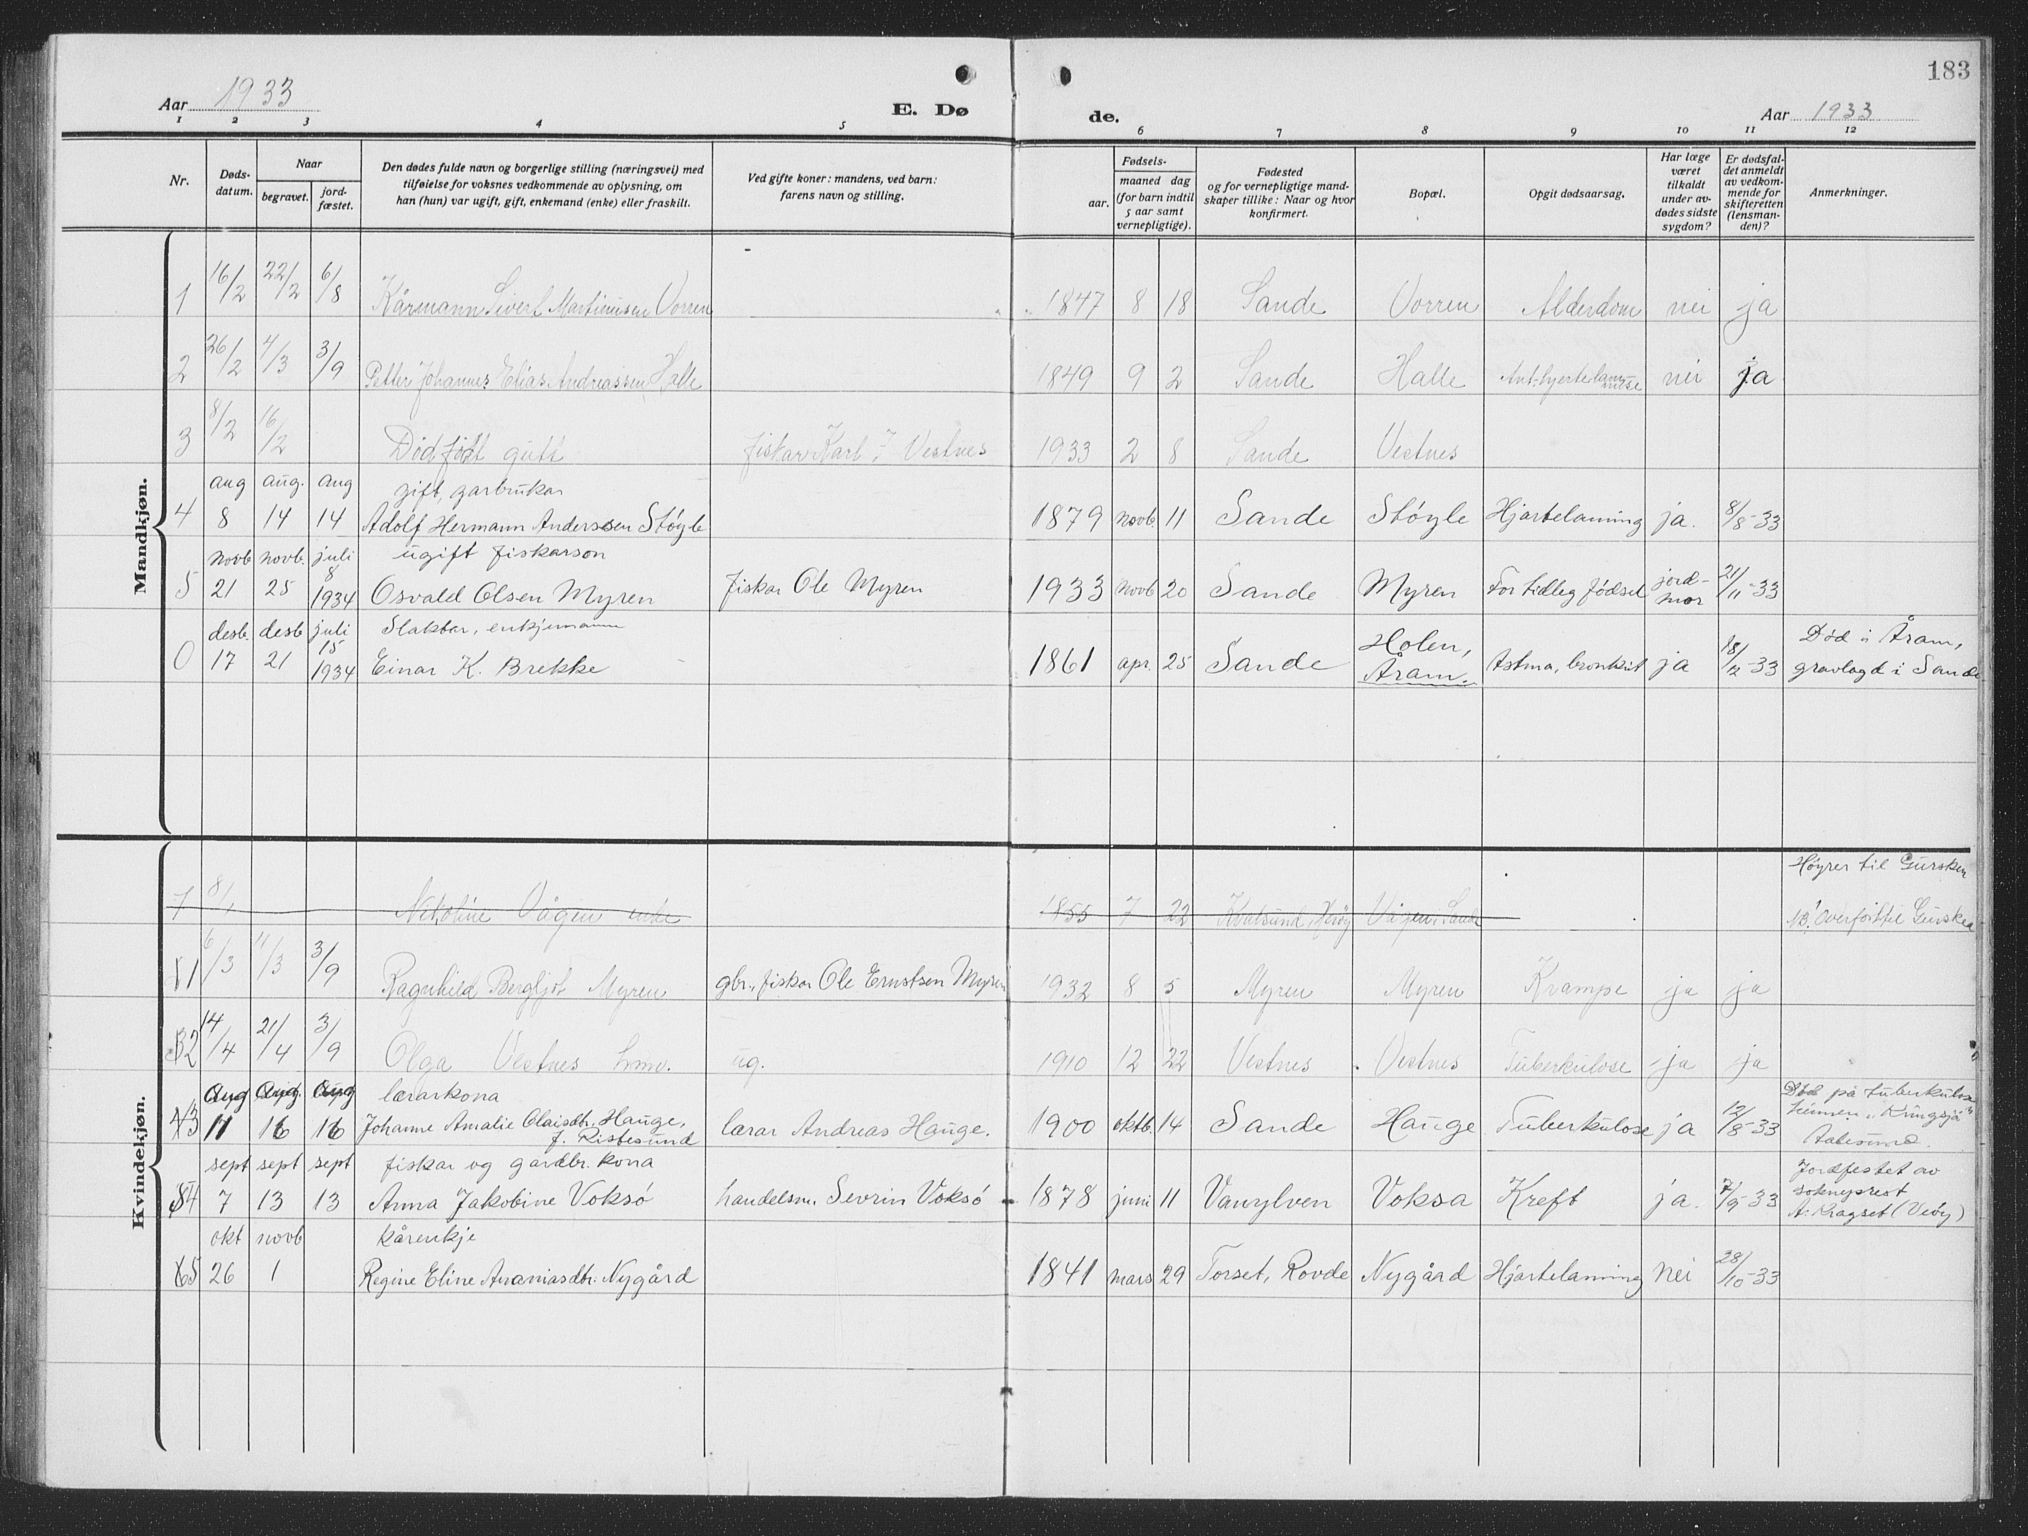 183
Aar 1933
E. Dø
de.
Aar 1933
1 2 3 4 5 6 7 8 9 10 11 12
Nr.
Døds-
datum.
Naar
begravet.
jord-
fæstet.
Den dødes fulde navn og borgerlige stilling (næringsvei) med
tilføielse for voksnes vedkommende av oplysning, om
han (hun) var ugift, gift, enkemand (enke) eller fraskilt.
Ved gifte koner: mandens, ved barn:
farens navn og stilling.
Fødsels-
aar.
maaned dag
(for barn indtil
5 aar samt
vernepligtige).
Fødested
og for vernepligtige mand-
skaper tillike: Naar og hvor
konfirmert.
Bopæl.
Opgit dødsaarsag.
Har læge
været
tilkaldt
under av-
dødes sidste
sygdom?
Er dødsfal-
det anmeldt
av vedkom-
mende for
skifteretten
(lensman-
den)?
Anmerkninger.
Mandkjøn.
1 16/2 22/2 6/8 Kårmann Sivert Martinusen Vorren 1847 8 18 Sande Vorren Alderdom nei ja
2 26/2 4/3 3/9 Petter Johannes Elias Andreassen Halle 1849 9 2 Sande Halle nei ja
3 8/2 16/2 Dødfødt gutt fiskar Karl Vestnes 1933 2 8 Sande Vestnes
aug aug. aug gift, garbrukar
4 8 14 14 Adolf Hermann Anderssen Støyle 1879 novb 11 Sande Støyle Hjartelaming ja. 8/8-33
novb novb. juli ugift fiskarson
8
5 21 25 1934 Osvald Olsen Myren fiskar Ole Myren 1933 novb 20 Sande Myren For tidleg fødsel jord-
mor 21/11-33
desb. desb juli enkjemann
15
17 21 1934 Einar K. Brekke 1861 apr. 25 Sande Holen,
Åram. Astma, bronkit ja 18/12-33 Død i Åram,
gravlagd i Sande.
Kvindekjøn.
Høyrer til Gursken
8/1 Nikoline Vågen enke 1855 7 22 Vågen, Sande NB! Overført til Gursken
1 6/3 11/3 3/9 Ragnhild Bergljot Myren gbr., fiskar Ole Ernstsen Myren 1932 8 5 Myren Myren Krampe ja ja
2 14/4 21/4 3/9 Olga Vestnes ug. 1910 12 22 Vestnes Vestnes Tuberkulose ja ja
Aug Aug. Aug lærarkona
3 11 16 16 Johanne Amalie Olaisdtr. Hauge,
f. Ristesund lærar Andreas Hauge. 1900 oktb. 14 Sande Hauge Tuberkulose ja 12/8-33 Død på tuberkulose
heimen "Kringsjå"
Aalesund.
sept sept sept fiskar og gardbr. kona
4 7 13 13 Anna Jakobine Voksø handelsm. Sevrin Voksø 1878 juni 11 Vanylven Voksa Kreft ja. 7/9-33 Jordfestet av
sokneprest
A. Kragset (Veøy)
okt novb kårenkje
5 26 1 Regine Eline Ananiasdtr. Nygård 1841 mars 29 Torset, Rovde Nygård Hjartelaming nei 28/10-33